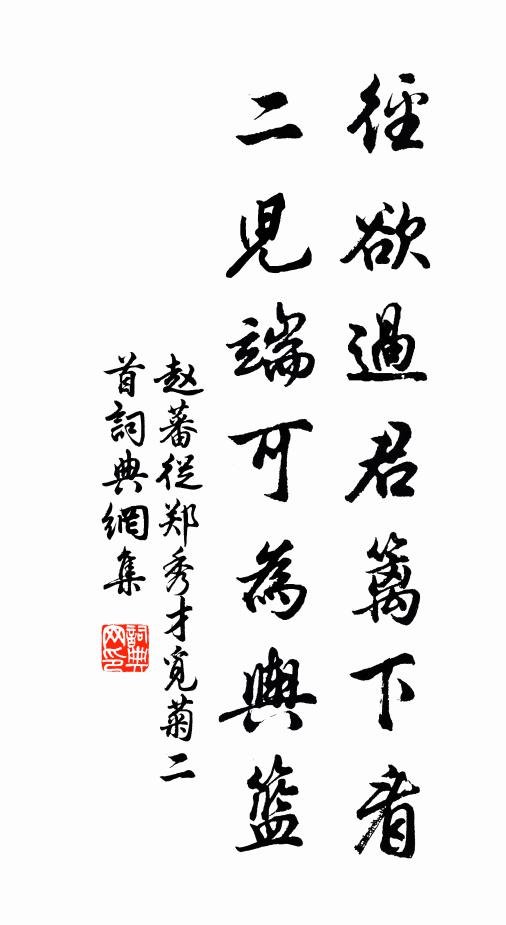 徑欲過君篱下看
二児端可為輿籃
赵蕃從郑秀才覓菊二
首詞典網集
詞典
网印